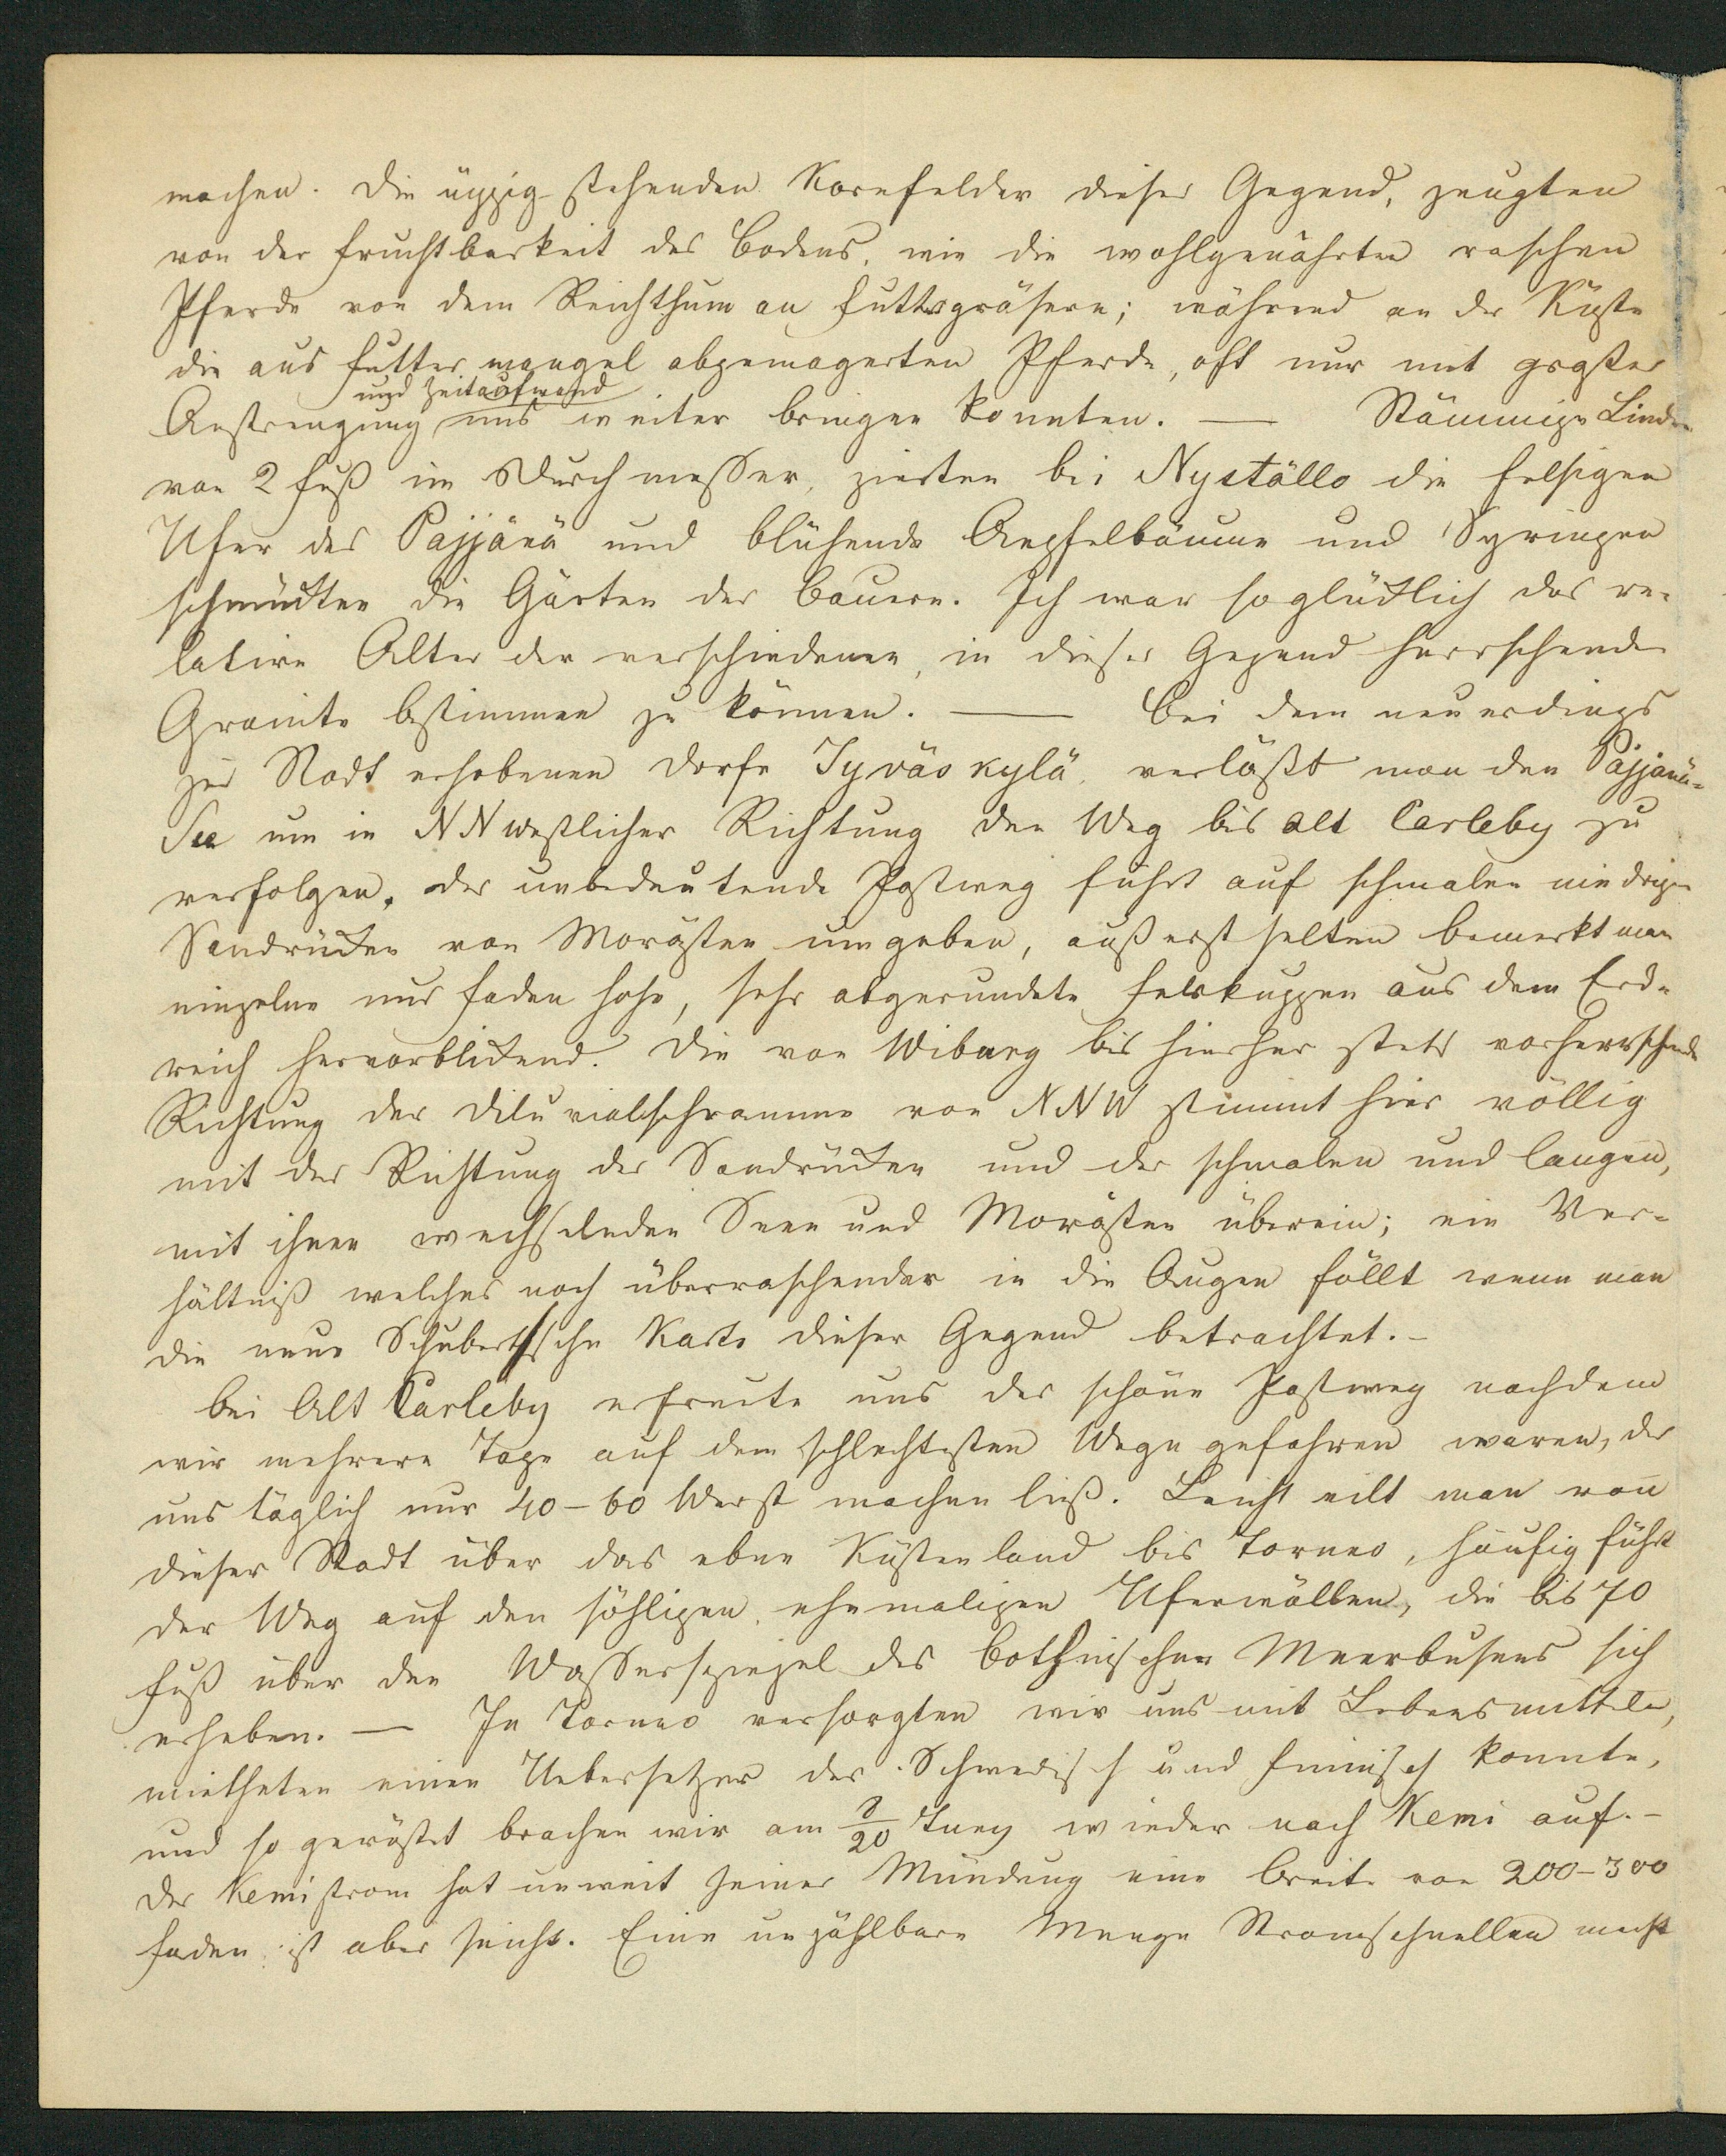 machen. Die üppig stehenden Kornfelder dieser Gegend, zeugten
von der Fruchtbarkeit des Bodens, wie die wohlgenährten raschen
Pferde von dem Reichthum an Futtergräsern; während an der Küste
die aus Futtermangel abgemagerten Pferde, oft nur mit grosser
und Zeitaufwand
Anstrengung uns weiter bringen konnten. — Stämmige Linden
von 2 Fuß im Durchmesser, zierten bei Nystöllo die felsigen
Ufer des Pajjänä und blühende Aepfelbäume und Syringen
schmückten die Gärten der Bauern. Ich war so glücklich das re-
lative Alter der verschiedenen, in dieser Gegend herrschenden
Granite bestimmen zu können. — Bei dem neuerdings
zur Stadt erhobenen Dorfe Jyväskylä, verläßt man den Pajjänä-
See um in NNwestlicher Richtung den Weg bis alt Carleby zu
verfolgen. Der unbedeutende Postweg führt auf schmalen niedrigen
Sandrücken von Morästen umgeben, äußerst selten bemerkt man
einzelne nur Faden hohe, sehr abgerundete Felskuppen aus dem Erd-
reich hervorblickend. Die von Wiburg bis hierher stets vorherrschende
Richtung der Diluvialschramme von NNW stimmt hier völlig
mit der Richtung der Sandrücken und der schmalen und langen,
mit ihnen wechselnden Seen und Morästen überein; ein Ver-
hältniß welches noch überraschender in die Augen fällt wenn man
die neue Schubertsche Karte dieser Gegend betrachtet. –
Bei Alt Carleby erfreute uns der schöne Postweg nachdem
wir mehrere Tage auf dem schlechtesten Wege gefahren waren, der
uns täglich nur 40–60 Werst machen ließ. Leicht eilt man von
dieser Stadt über das ebne Küstenland bis Torneo, häufig führt
der Weg auf den söhligen, ehemaligen Uferwällen, die bis 70
Fuß über den Wasserspiegel des bothnischen Meerbusens sich
erheben. — In Torneo versorgten wir uns mit Lebensmitteln,
mietheten einen Uebersetzer der Schwedisch und finnisch konnte,
und so gerüstet brachen wir am 8/20 Juny wieder nach Kemi auf. –
Der Kemistrom hat unweit seiner Mündung eine Breite von 200–300
Faden, ist aber seicht. Eine unzählbare Menge Stromschnellen macht